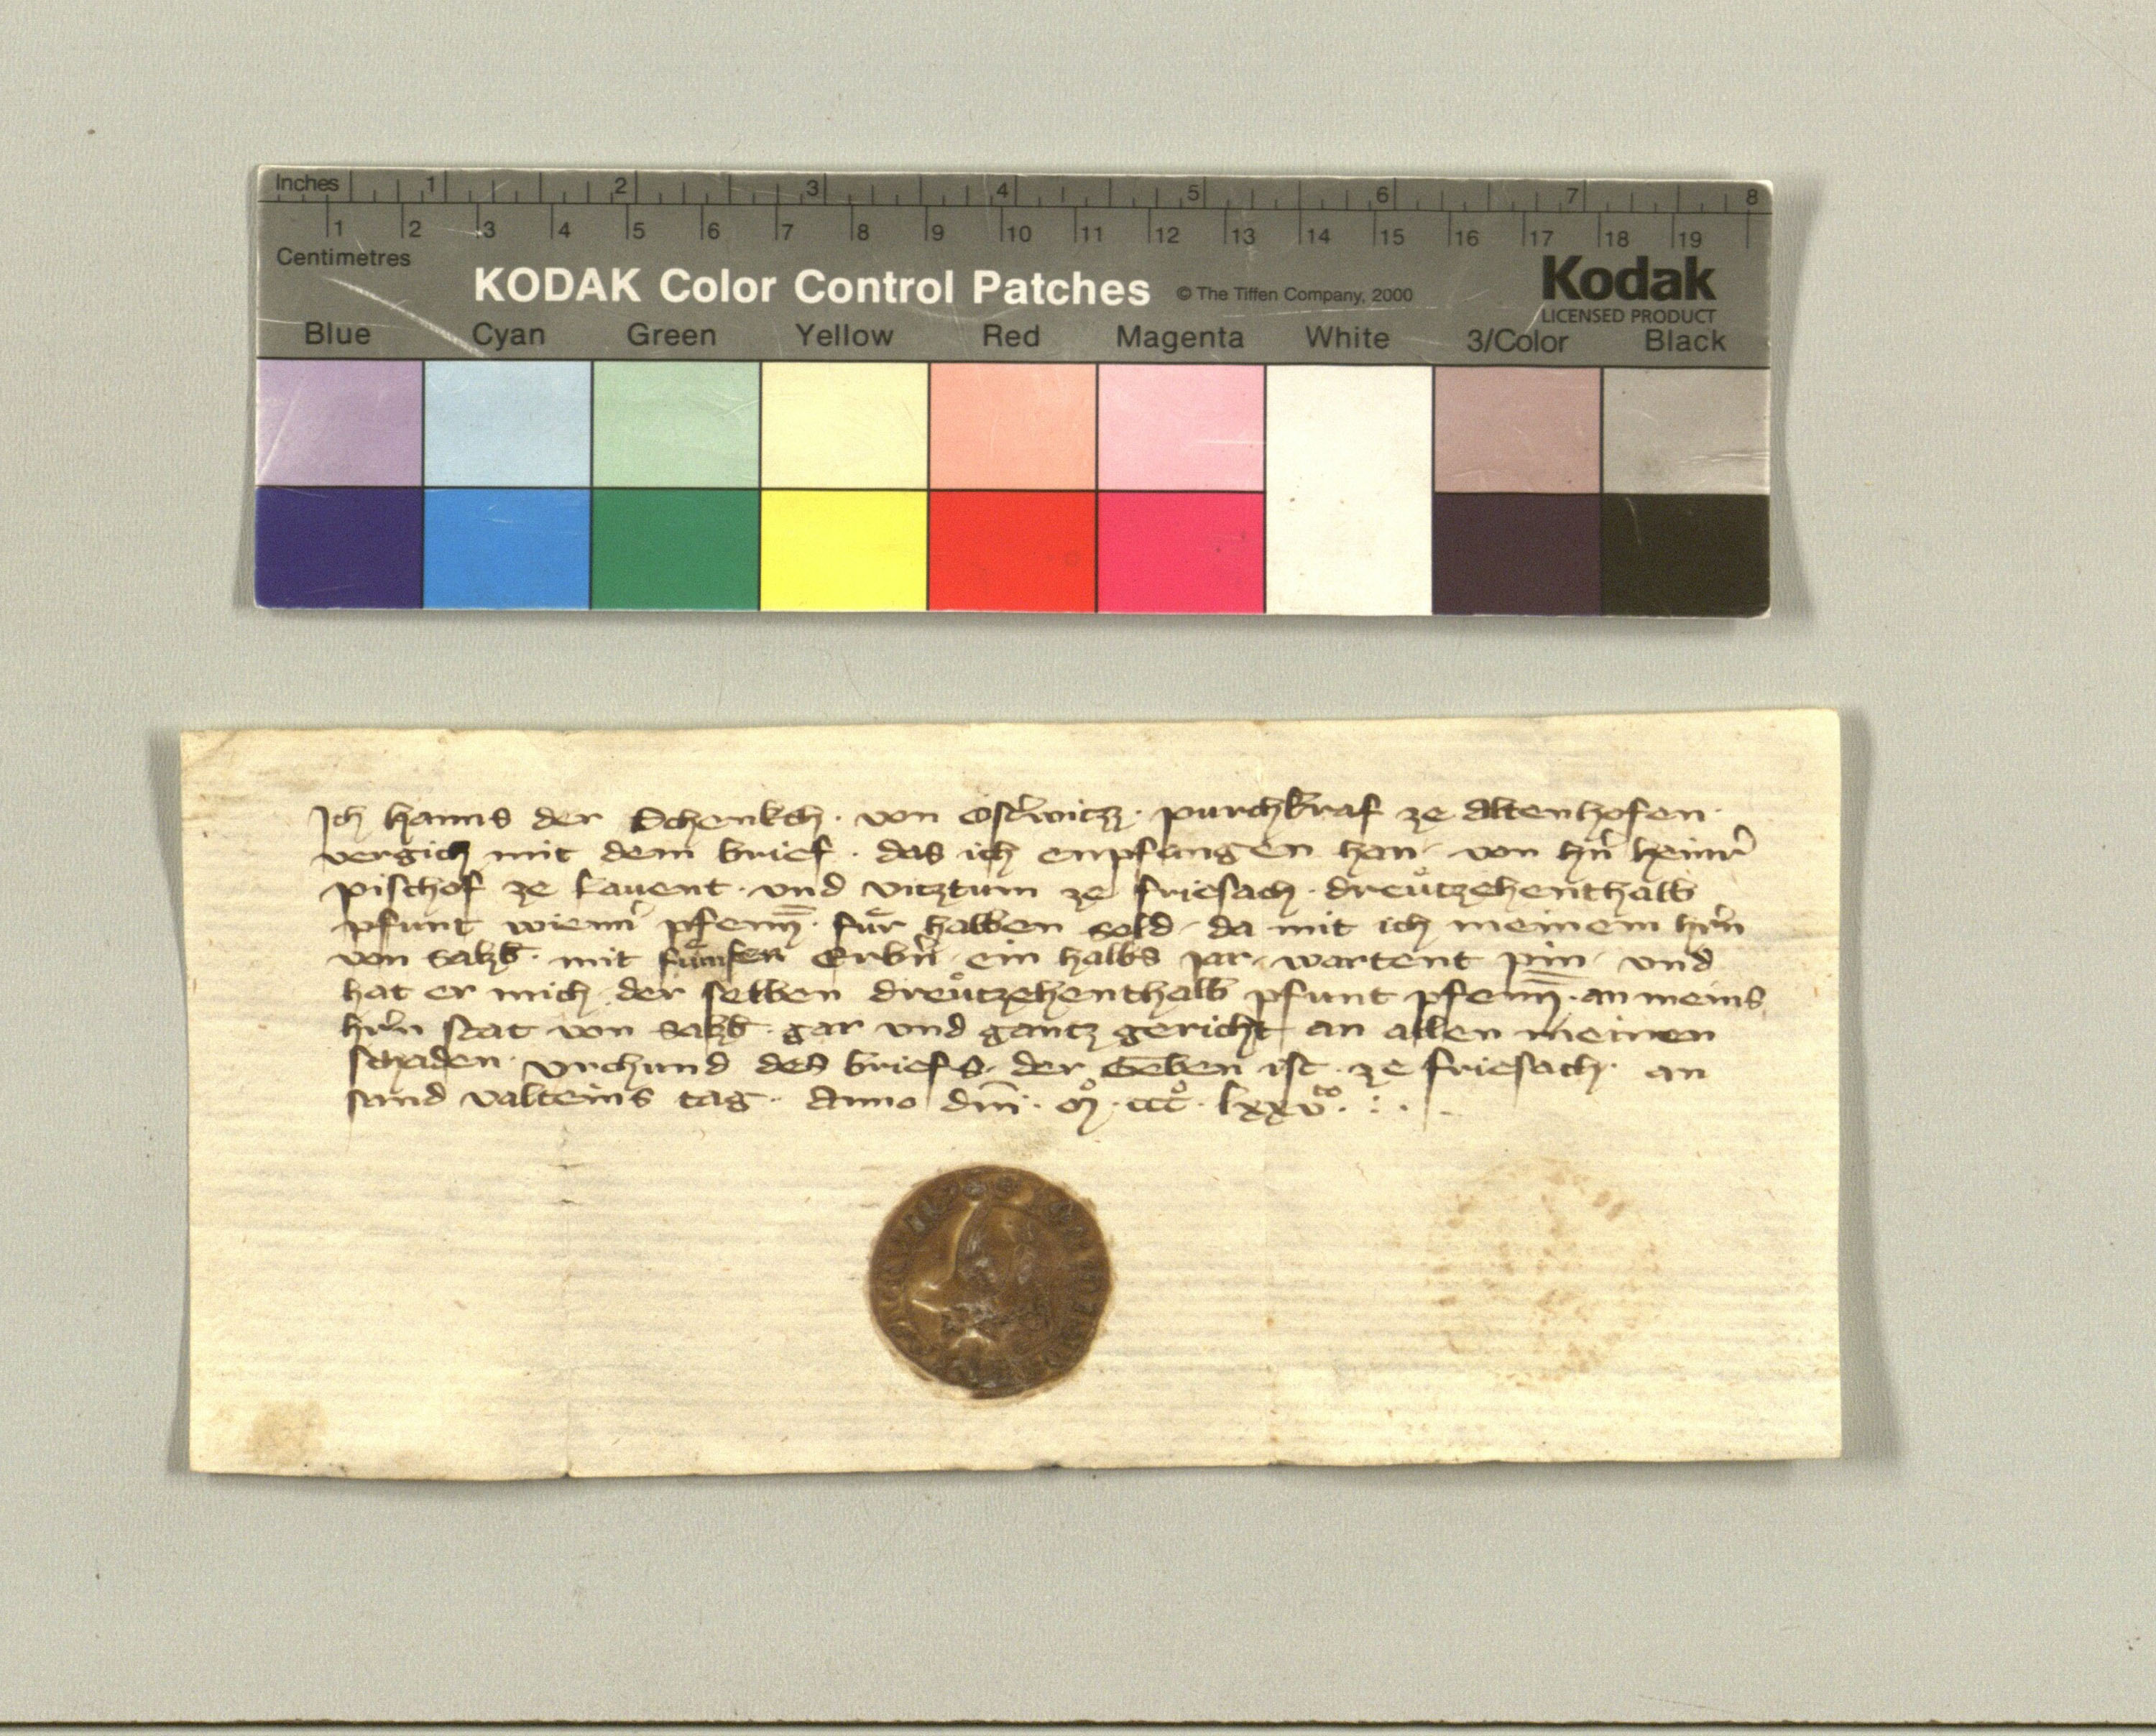 Inches 1 2 3 4 5 6 7 8
1 2 3 4 5 6 7 8 9 10 11 12 13 14 15 16 17 18 19
Centimetres
KODAK Color Control Patches © The Tiffen Company, 2000 Kodak
LICENSED PRODUCT
Blue Cyan Green Yellow Red Magenta White 3/Color Black
Ich Hanns der Schenkch · von Ost̕witzz · purchkraf ze Altenhofen ·
vergich mit dem brief · das ich enpfangen han · von hn̕ heinr̕
pischof ze Lauent · vnd vitztum ze friesach · dreůtzehenthalb
pfunt wienn̕ pfenn̄ · fuͤr halben sold · da mit ich meinem hr̕n
von Salzb̄ · mit fuͤmfen Erbn̕ · ein halbs jar · wartent pin · vnd
hat er mich · der selben dreůtzehenthalb pfunt pfenn̄ · an meins
hr̕n stat von Salzb̄ · gar vnd gantz gericht an allen meinen
schaden · vrchund des briefs · der Geben ist · ze friesach · an
sand valteins tag · Anno dm̄i · mͦ · cccͦ · lxxvᵗᵒ ·